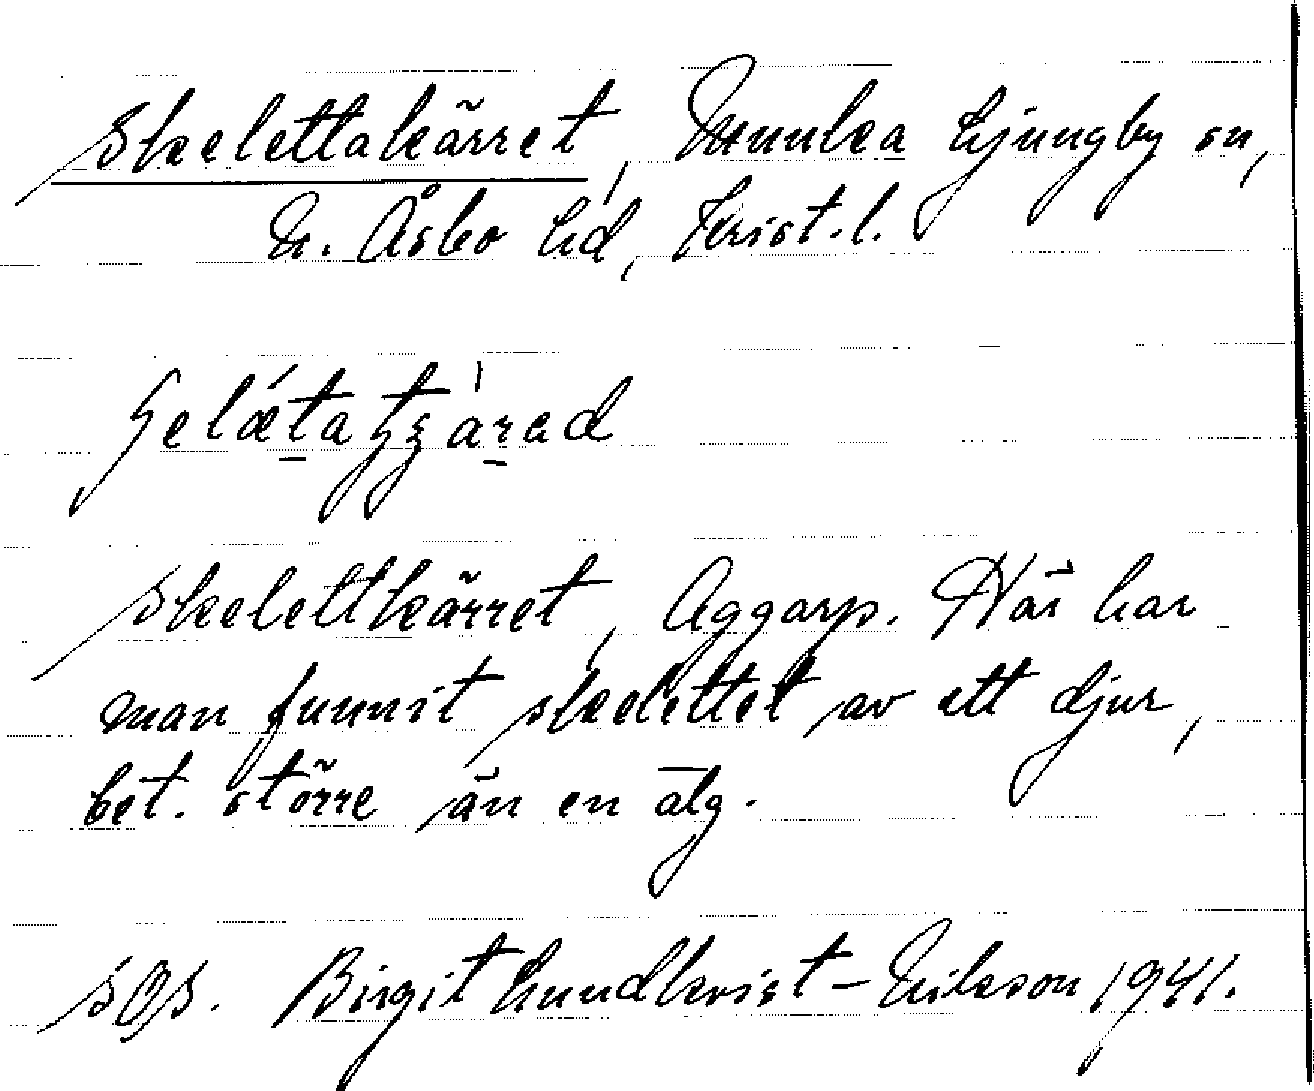 Skelettakärret, Munka Ljungby sn,
N. Åsbo hd, Krist. l.
Skelettkärret, Aggarp. Här har
man funnit skelettet av ett djur,
bet. större än en älg.
SOS. Birgit Lundkvist-Nilsson 1941.